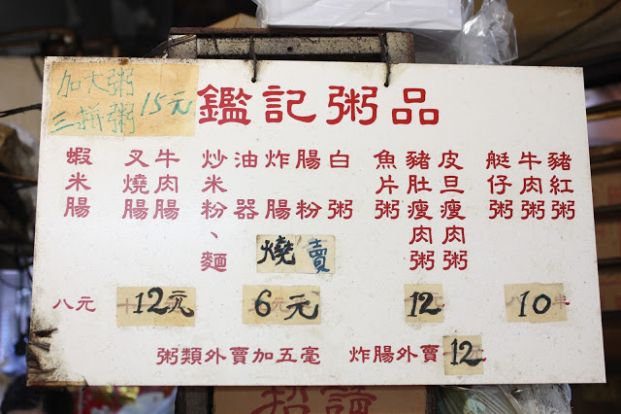 加大粥
三拼粥
15元
鑑記粥品
蝦米腸
叉燒腸
牛肉腸
炒米粉、麵
油器
炸腸
腸粉
白粥
燒賣
魚片粥
豬肚瘦肉粥
皮旦瘦肉粥
艇仔粥
牛肉粥
豬紅粥
八元 12元 6元 12 10
粥類外賣加五毫 炸腸外賣12